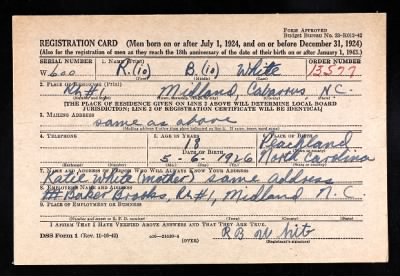 FORM APPROVED
Budget Bureau No. 33-R012-42
REGISTRATION CARD (Men born on or after July 1, 1924, and on or before December 31, 1924)
(Also for the registration of men as they reach the 18th anniversary of the date of their birth on or after January 1, 1925.)
SERIAL NUMBER 1. NAME (Print) ORDER NUMBER
W 600 R. (io) B. (io) White 13,577
2. PLACE OF RESIDENCE (Print)
Rt #1 Midland, Cabarrus N.C.
[THE PLACE OF RESIDENCE GIVEN ON LINE 2 ABOVE WILL DETERMINE LOCAL BOARD
JURISDICTION; LINE 2 OF REGISTRATION CERTIFICATE WILL BE IDENTICAL]
3. MAILING ADDRESS
same as above
[Mailing address if other than place indicated on line 2. If same, insert word same]
4. TELEPHONE 5. AGE IN YEARS 6. PLACE OF BIRTH
18 Peachland
DATE OF BIRTH
5-6-1926 North Carolina
7. NAME AND ADDRESS OF PERSON WHO WILL ALWAYS KNOW YOUR ADDRESS
Katie White (mother) same address
8. EMPLOYER'S NAME AND ADDRESS
Baker Brooks, Rt #1, Midland N.C
9. PLACE OF EMPLOYMENT OR BUSINESS
I AFFIRM THAT I HAVE VERIFIED ABOVE ANSWERS AND THAT THEY ARE TRUE.
DSS Form 1 (Rev. 11-16-42) (OVER) R B White
(Registrant's signature)